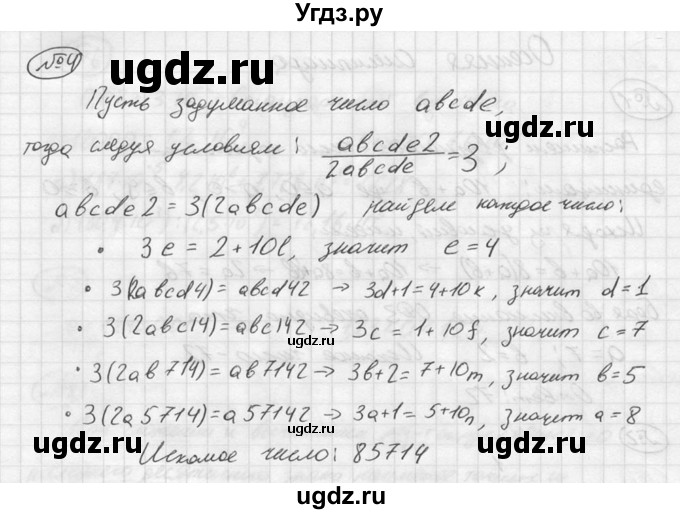 Угдз.ру
№4
ugdz.ru ugdz.ru
Пусть задуманное число abcde,
тогда следуя условиям: abcde2/2abcde = 3;
abcde2 = 3(2abcde) найдем каждое число:
• 3e = 2+10l, значит e=4
• 3(2abcd4) = abcd42 → 3d+1=4+10k, значит d=1
• 3(2abc14) = abc142 → 3c = 1+10f, значит c=7
• 3(2ab714) = ab7142 → 3b+2= 7+10m, значит b=5
• 3(2a5714) = a57142 → 3a+1= 5+10n, значит a=8
ugdz.ru ugdz.ru
Искомое число: 85714
ugdz.ru